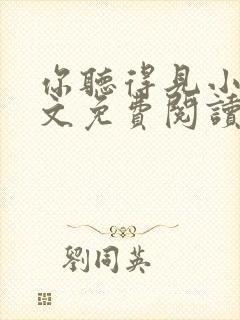 你聽得見小
文免費閱讀
劉同英